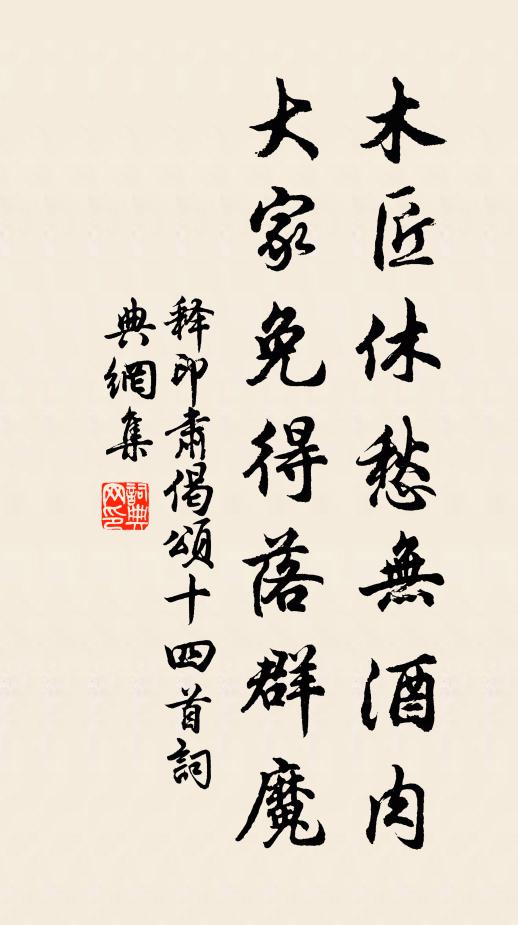 木匠休愁無酒肉
大家免得落群魔
释印肃偈頌十四首詞
典網集
詞典
网印